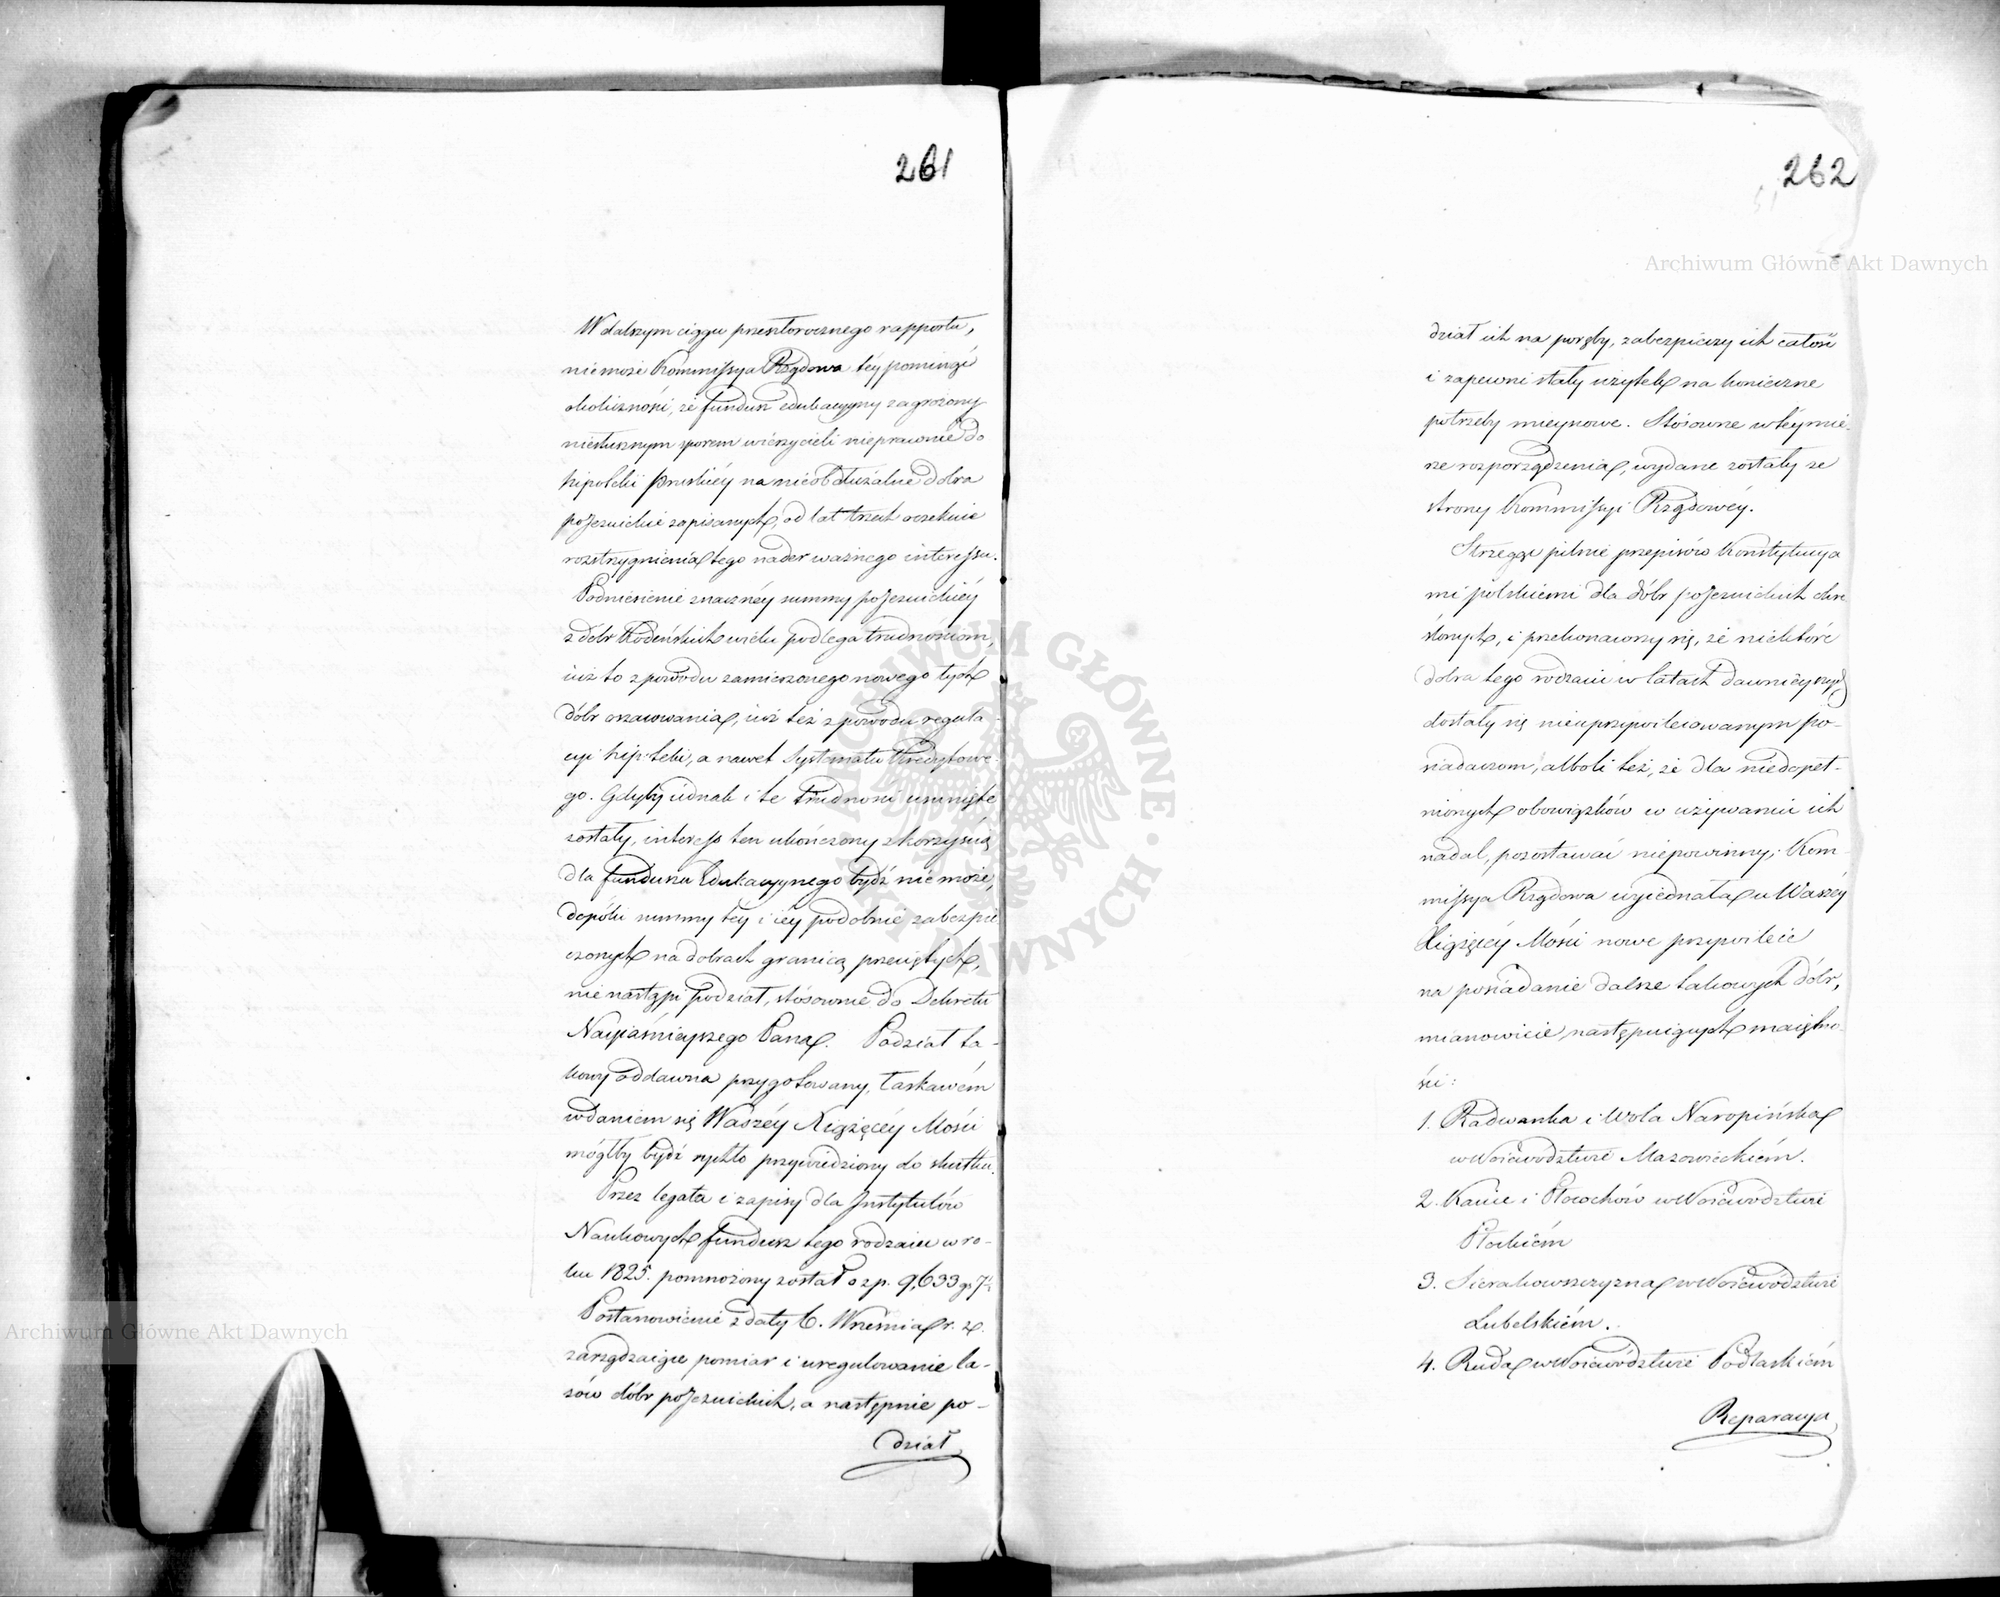 261
W dalszym ciągu przeszłorocznego rapportu,
niemoże Kommissya Rządowa téy pominąć
okoliczności, że fundusz edukacyyny zagrożony
niesłusznym sporem wierzycieli nieprawnie do
hipoteki Pruskiéy na nieobdłużalne dobra
pojezuickie zapisanych, od lat trzech oczekuie
rozstrzygnienia tego nader ważnego interessu.
Podniesienie znacznéy summy pojezuickiéy
z dóbr Kodeńskich wielu podlega trudnościom,
iuż to z powodu zamierzonego nowego tych
dóbr oszacowania, iuż też z powodu regula-
cyi hipoteki, a nawet Systematu Kredytowe-
go. Gdyby iednak i te trudności usunięte
zostały, interess ten ukończony z korzyścią
dla funduszu Edukacyynego bydź nie może,
dopóki summy téy i iéy podobnie zabezpie
czonych na dobrach granicą przeciętych,
nie nastąpi podział, stósownie do Dekretu
Nayiaśnieyszego Pana. Podział ta-
kowy oddawna przygotowany, łaskawém
wdaniem się Waszéy Xiążęcéy Mości
mógłby bydź rychło przywiedziony do skutku.
Przez legata i zapisy dla Instytutów
Naukowych fundusz tego rodzaiu w ro-
ku 1825. pomnożony został o zp. 9,633 gr. 7½
Postanowienie z daty 6. Września r. z.
zarządzaiące pomiar i uregulowanie la-
sów dóbr pojezuickich, a następnie po-
dział
262
dział ich na poręby, zabezpieczy ich całość
i zapewni stały użytek na konieczne
potrzeby mieyscowe. Stósowne w téy mie-
rze rozporządzenia, wydane zostały ze
strony Kommissyi Rządowéy.
Strzegąc pilnie przepisów Konstytucya
mi polskiemi dla dóbr pojezuickich okre
ślonych, i przekonawszy się, że niektóre
dobra tego rodzaiu w latach dawniéyszych
dostały się nieuprzywileiowanym po-
siadaczom, albo li też, że dla niedopeł-
nionych obowiązków w używaniu ich
nadal, pozostawać niepowinny; Kom-
missya Rządowa wyiednała u Waszéy
Xiążęcéy Mości nowe przywileie
na posiadanie dalsze takowych dóbr,
mianowicie następuiących maiętno-
ści:
1. Radwanka i Wola Naropińska
w Woiewództwie Mazowieckiém.
2. Kanie i Płocochów w Woiewództwie
Płockiém
3. Sierakowszczyzna w Woiewództwie
Lubelskiém.
4. Ruda w Woiewództwie Podlaskiém
Reparacya
Archiwum Główne Akt Dawnych
Archiwum Główne Akt Dawnych
ARCHIWUM GŁÓWNE · AKT DAWNYCH ·